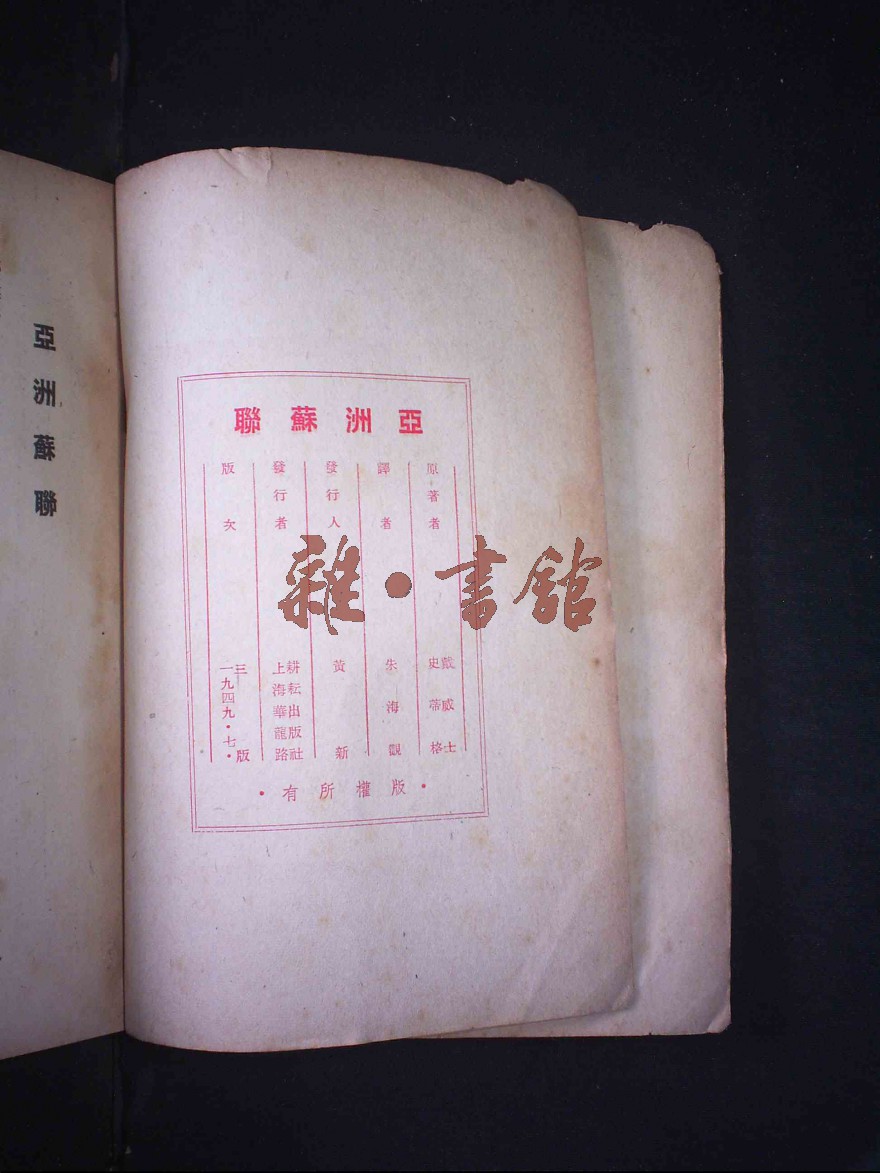 亞洲蘇聯
亞洲蘇聯
原著者 戴威士 史蒂格
譯者 朱海觀
發行人 黃新
發行者 耕耘出版社 上海華龍路
版次 三版 一九四九·七·
·版權所有·
雜·書館